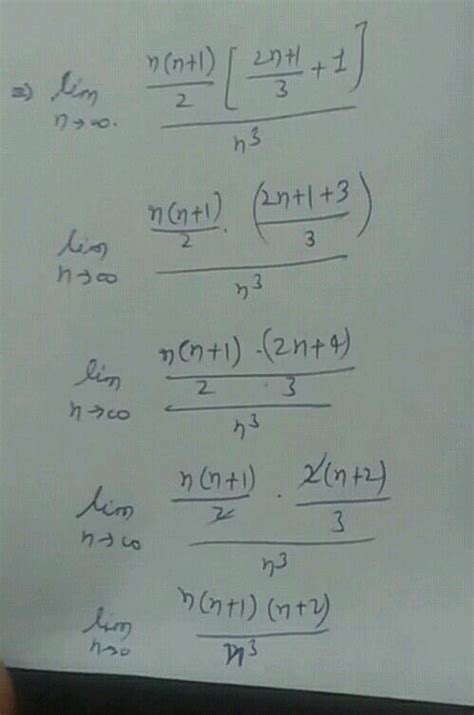 ⇒) lim n→∞. n(n+1)/2 [ (2n+1)/3 + 1 ] / n³
lim n→∞ n(n+1)/2 · ( (2n+1+3)/3 ) / n³
lim n→∞ n(n+1) · (2n+4) / 2 · 3 / n³
lim n→∞ n(n+1)/2 · 2(n+2)/3 / n³
lim n→0 n(n+1)(n+2) / n³